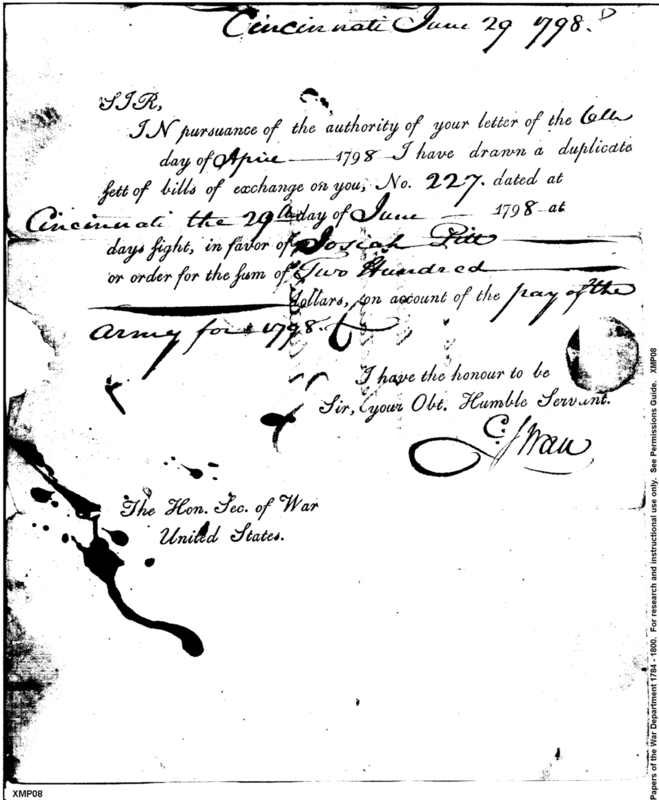 Cincinnati June 29 1798.
SIR,
IN pursuance of the authority of your letter of the 6th
day of Apriel 1798 I have drawn a duplicate
sett of bills of exchange on you, No. 227. dated at
Cincinnati the 29th day of June 1798 at
days sight, in favor of Josiah Pitt
or order for the sum of Two Hundred
dollars, on account of the pay of the
army for 1798.
I have the honour to be
Sir, your Obt. Humble Servant.
C. Swan
The Hon. Sec. of War
United States.
XMP08
Papers of the War Department 1784 - 1800. For research and instructional use only. See Permissions Guide. XMP08